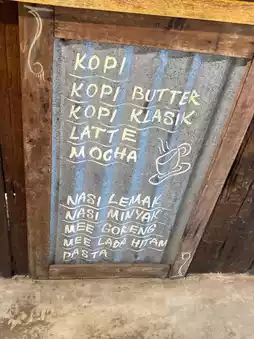 KOPI
KOPI BUTTER
KOPI KLASIK
LATTE
MOCHA
NASI LEMAK
NASI MINYAK
MEE GORENG
MEE LADA HITAM
PASTA